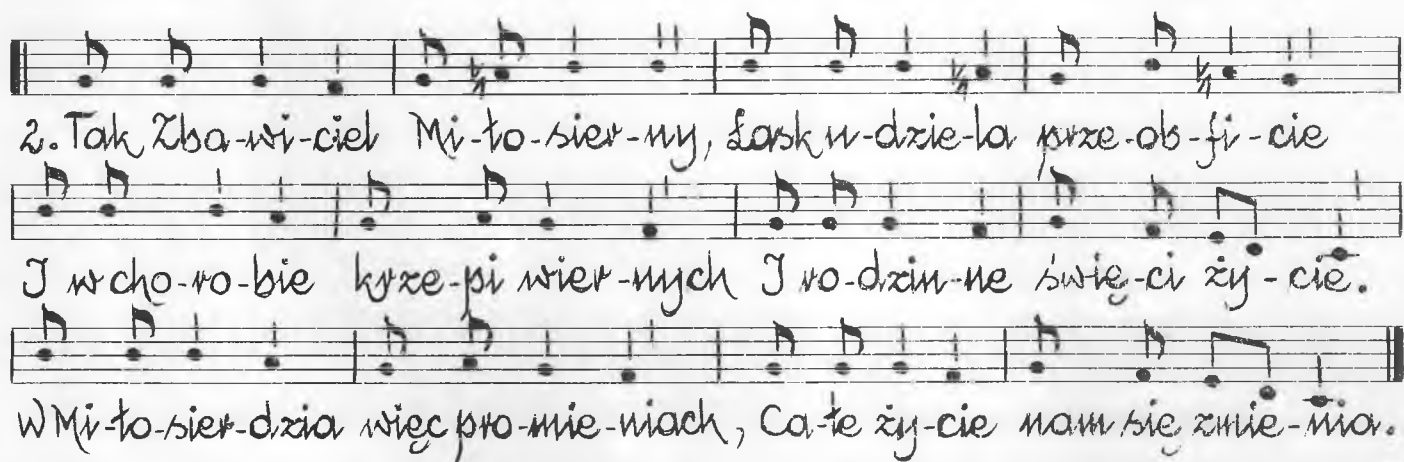 2. Tak Zba-wi-ciel Mi-ło-sier-ny, Łask u-dzie-la prze-ob-fi-cie
I w cho-ro-bie krze-pi wier-nych I ro-dzin-ne świę-ci ży-cie.
W Mi-ło-sier-dzia więc pro-mie-niach, Ca-łe ży-cie nam się zmie-nia.